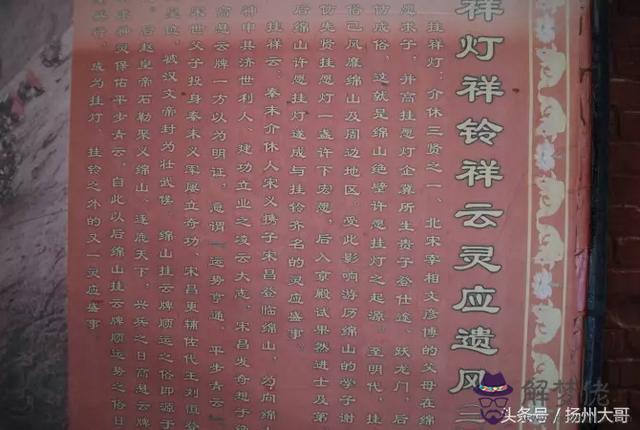 祥灯祥铃祥云灵应遗风
挂祥灯：介休三贤之一、北宋宰相文彦博的父母在绵
愿求子，并高挂愿灯企冀所生贵子登仕途、跃龙门，后
仿成俗，这就是绵山绝壁许愿挂灯之起源。至明代，挂
俗已风靡绵山及周边地区。受此影响游历绵山的学子谢
仿先贤挂愿灯一盏许下宏愿，后入京殿试果然进士及第
后绵山许愿挂灯遂成与挂铃齐名的灵应盛事。
挂祥云：秦末介休人宋义携子宋昌登临绵山，为向绵
神申其济世利人、建功立业之凌云大志，宋昌发奇想于
高悬云牌一方以为明证，意谓“运势亨通 平步青云”
宋世父子投身秦末义军屡立奇功，宋昌更辅佐代王刘恒登
皇位，被汉文帝封为壮武侯。绵山挂云牌顺运之俗即源于
。后赵皇帝石勒聚义绵山、逐鹿天下，兴兵之日高悬云牌
神灵保佑平步青云。自此以后绵山挂云牌顺运势之俗日
盛行，成为挂灯、挂铃之外的又一灵应盛事。
解梦佬
头条号／扬州大哥